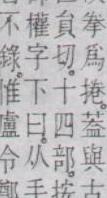 拳爲捲。蓋與古
員切。十四部。按
權字下曰。从手
不錄。惟盧令鄭